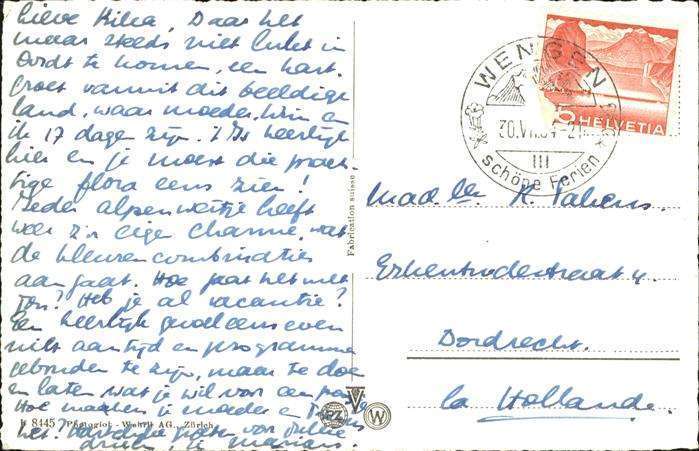 Lieve Rikea, Daar het
maar steeds niet lukt in
Ordt te komen, een hart.
Groet vanuit dit beeldige
land, waar moeder, Wim en
de 17 dagen zijn. 't Is heerlijk
hier en je moest die prach
tige flora eens zien!
Ieder alpenweitje heeft
weer z'n eigen charme, wat
de kleurencombinaties
aan gaat. Hoe gaat het met
Heb je al vacantie?
Een heerlijk gevoel eens even
niet aan tijd en programma
gebonden te zijn, maar te doen
en laten wat je wil voor een
Hoe maken je moeder en
het? Hartelijke groeten voor jullie
drieën, je Marian.
8445 Photoglob - Wehrli AG., Zürich
Fabrication suisse
W
WENGEN
30.VII.54-21
III
schöne Ferien
5 HELVETIA
Mad. lle K.
4.
Dordrecht.
la Hollande.